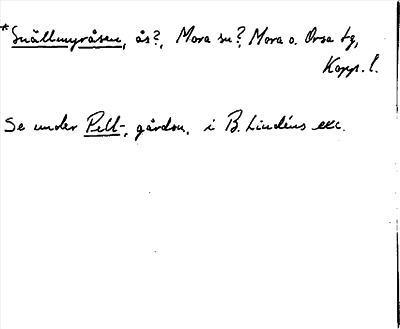 *Snällmyråsen, ås?, Mora sn?, Mora o. Orsa tg,
Kopp. l.
Se under Pell-, gårdsn. i B. Lindéns exc.